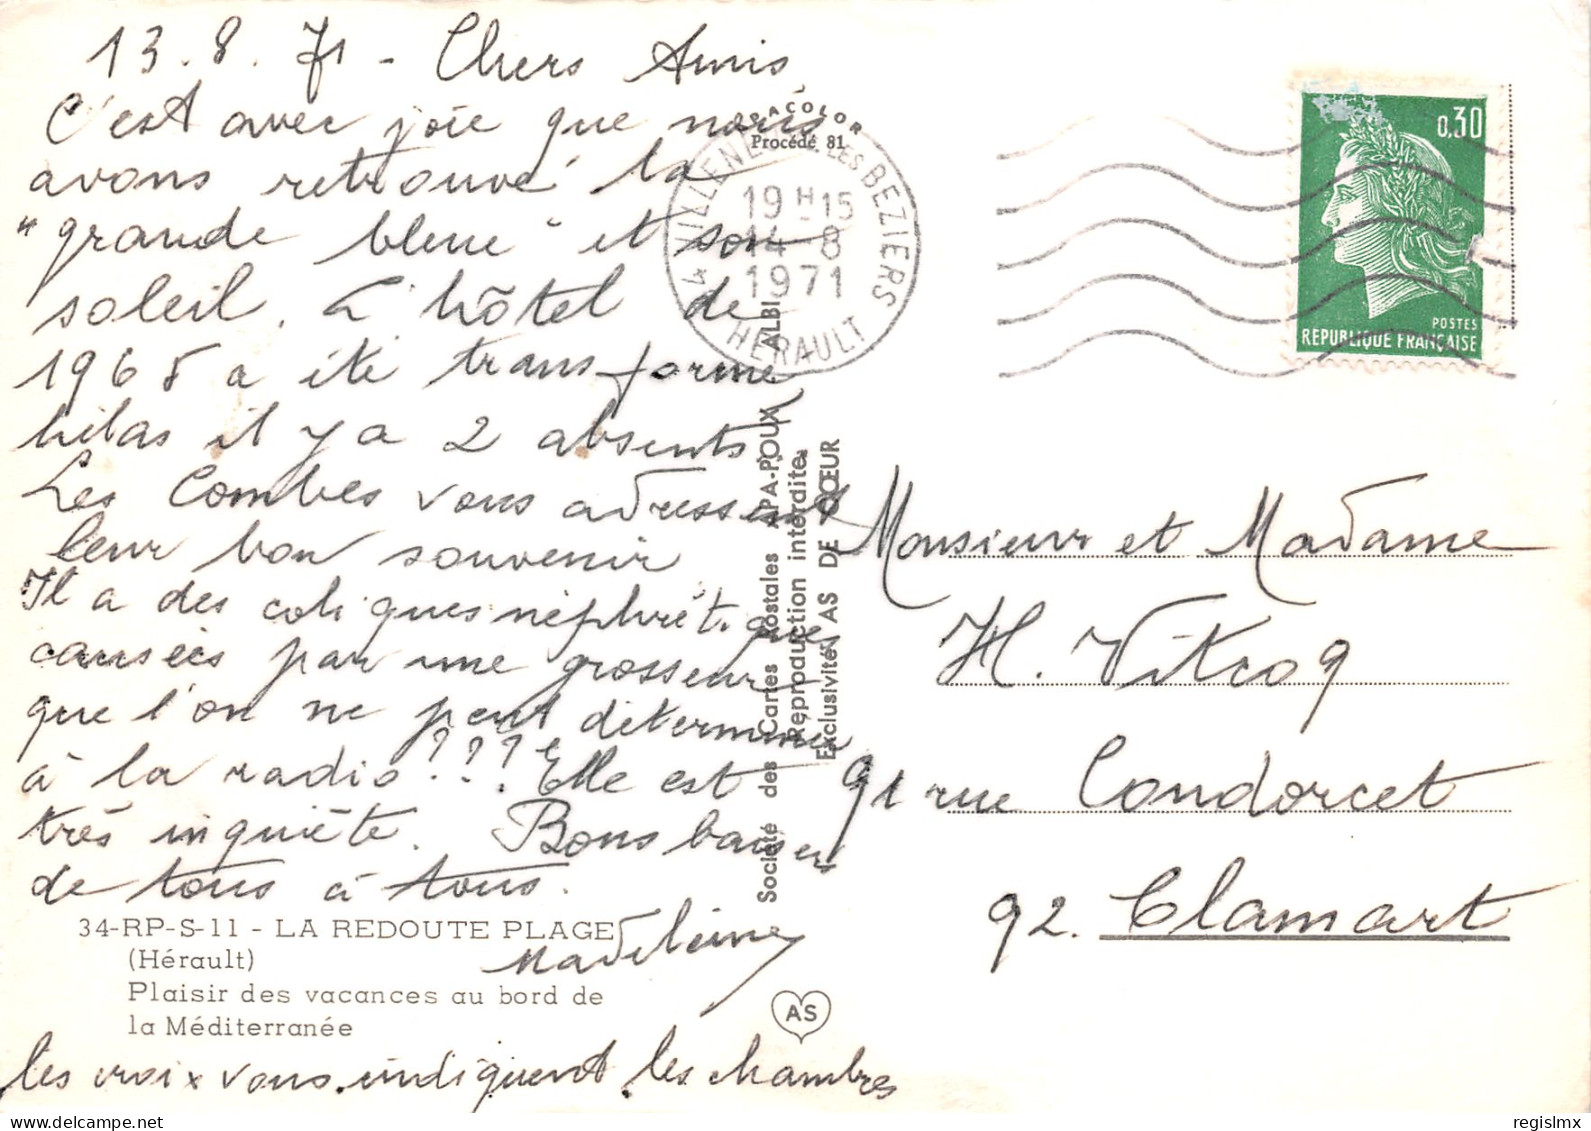 13.8.71 - Chers Amis
C'est avec joie que nous
avons retrouvé la
"grande bleue" et son
soleil. L'hôtel de
1968 a été transformé
hélas il y a 2 absents
Les Combes vous adressent
leur bon souvenir
Il a des coliques néphrétiques
causées par une grosseur
que l'on ne peut déterminer
à la radio ??? Elle est
très inquiète. Bons baisers
de tous à tous.
Madeleine
34-RP-S-11 - LA REDOUTE PLAGE
(Hérault)
Plaisir des vacances au bord de
la Méditerranée
les croix vous indiquent les chambres
Procédé 81
LES BEZIERS
19 H 15
14-8
1971
HERAULT
Société des Cartes Postales APA-POUX ALBI
Reproduction interdite
Exclusivité AS DE CŒUR
AS
0,30
POSTES
REPUBLIQUE FRANÇAISE
Monsieur et Madame
H. Vitcoq
91 rue Condorcet
92. Clamart
regislmx